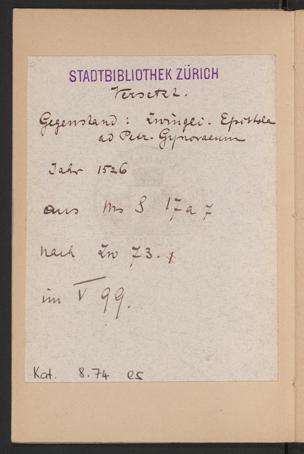 STADTBIBLIOTHEK ZÜRICH
Versetzt.
Gegenstand: Zwingli. Epistola
ad Petr. Gynoraeum
Jahr 1526
aus Ms S 17a 7
nach Zw 73. 1
im V 99.
Kat. 8.74 es